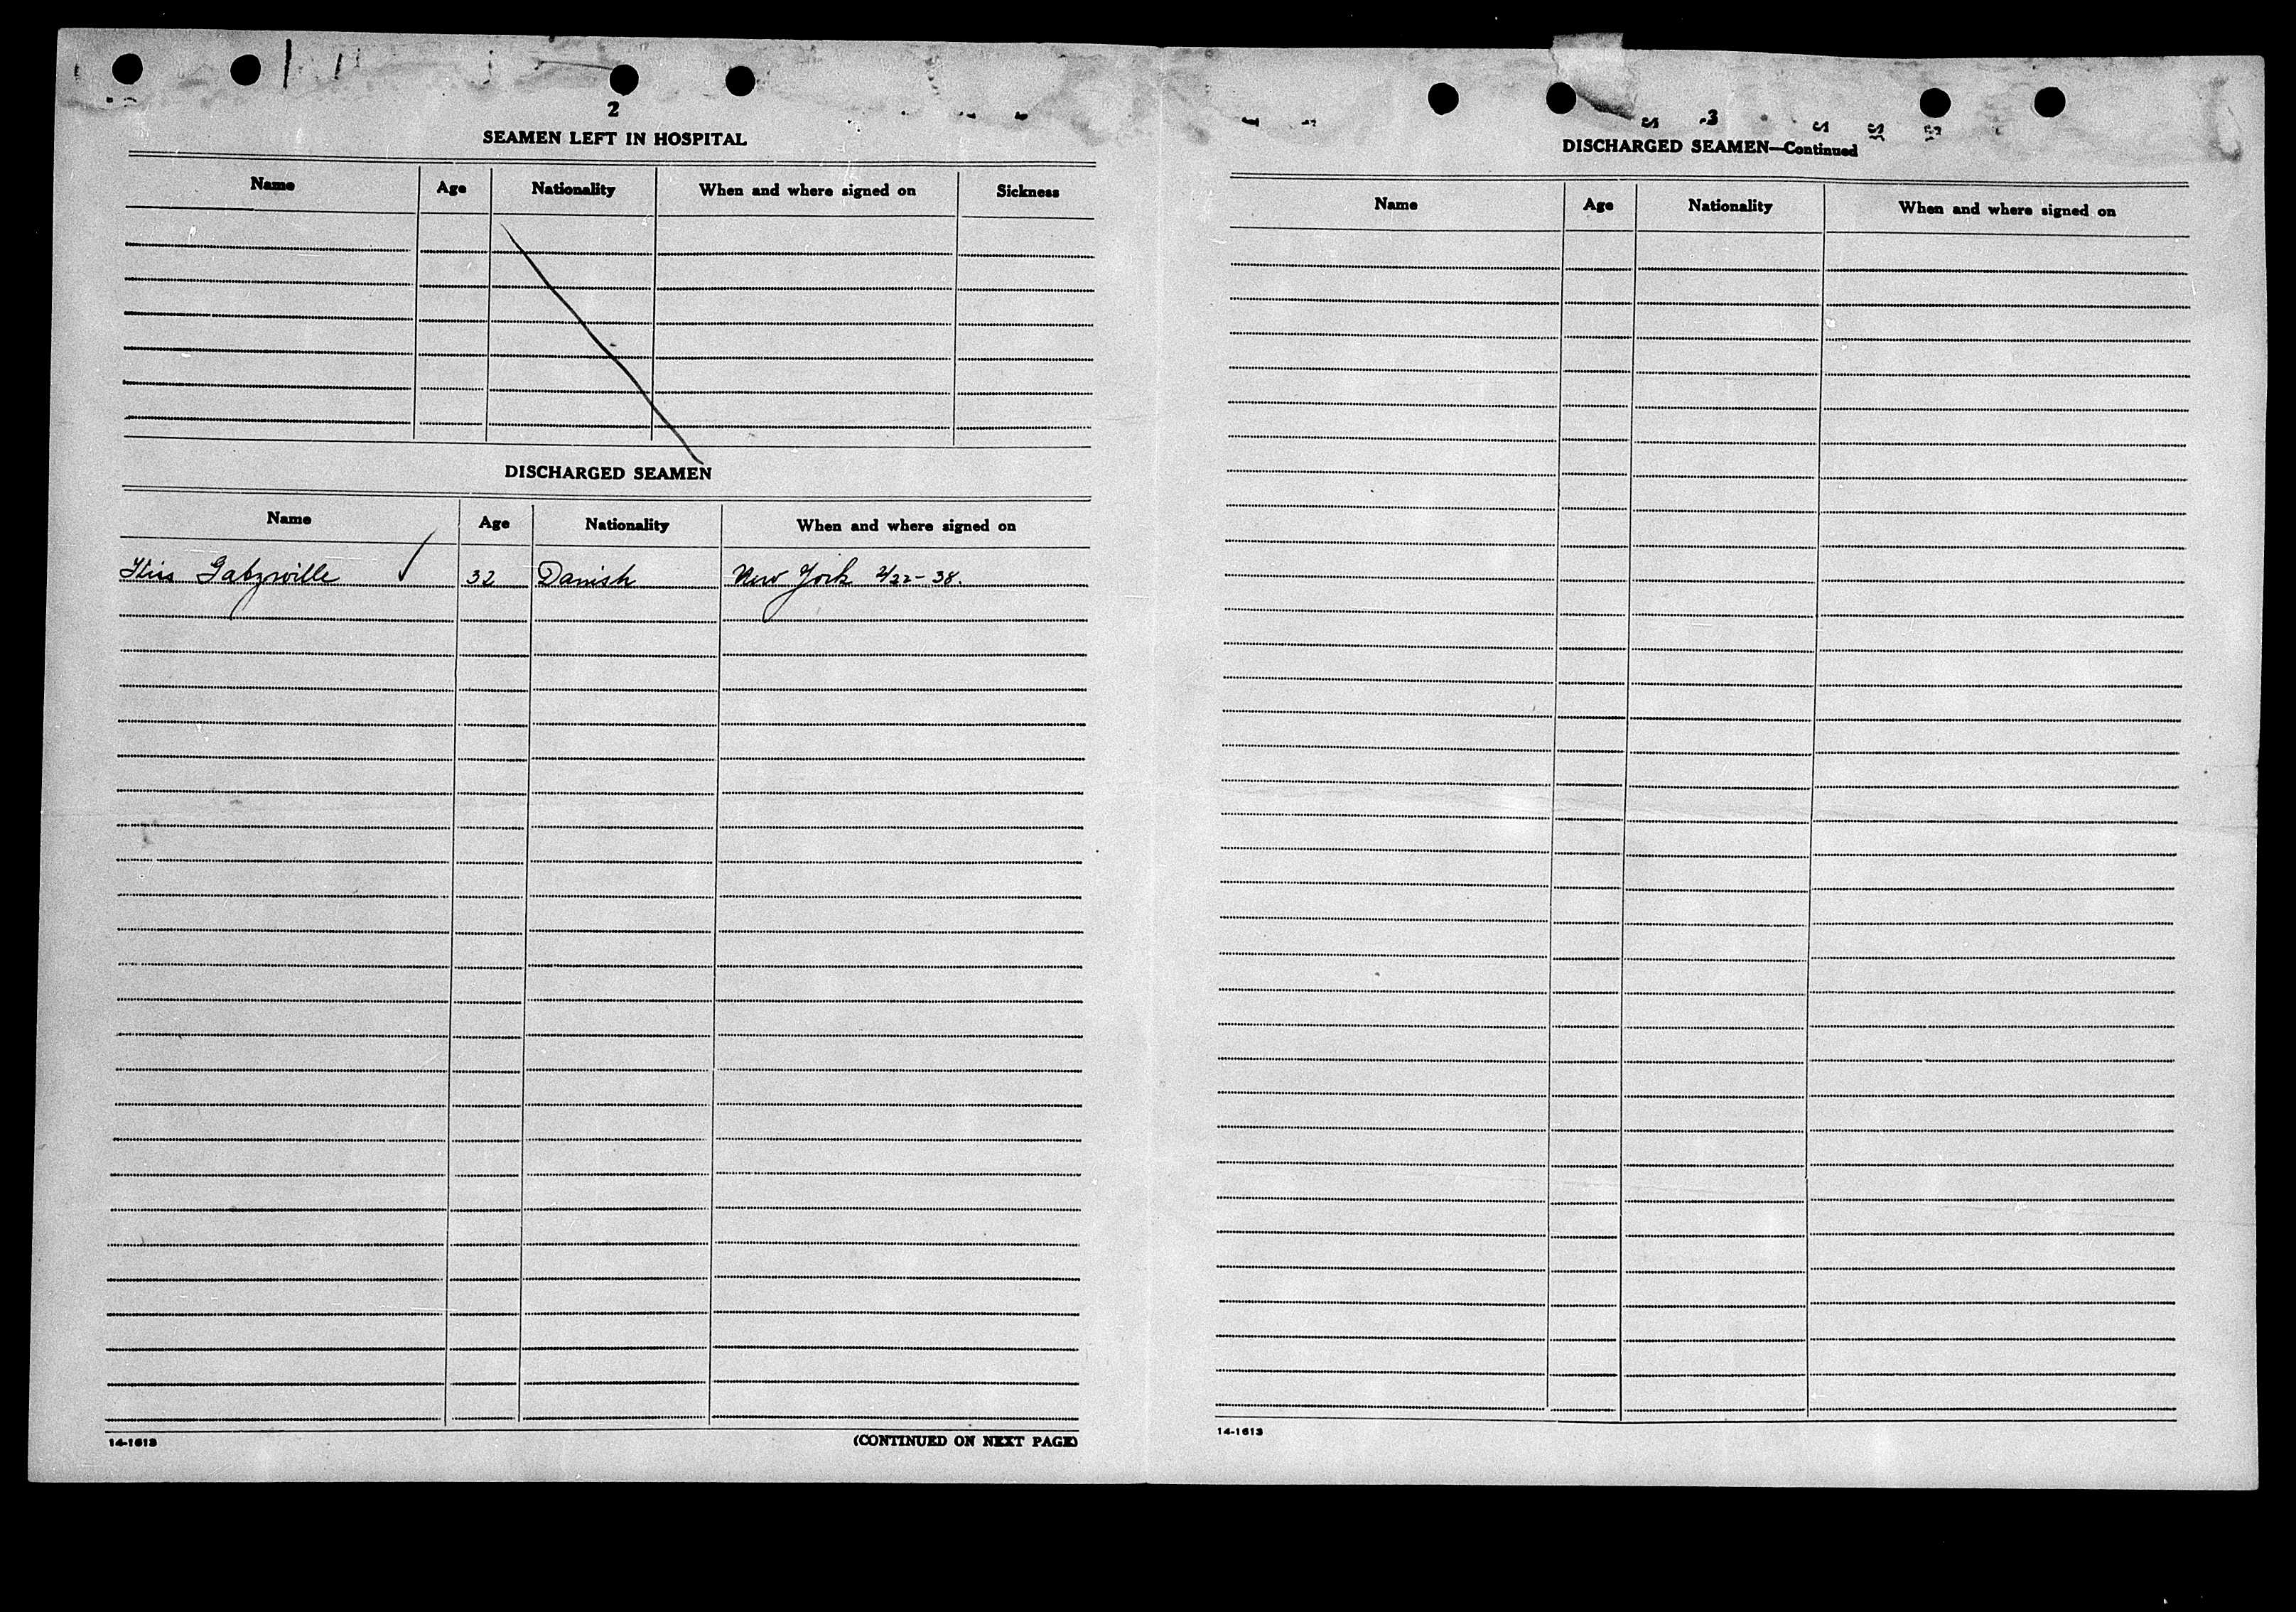 2
SEAMEN LEFT IN HOSPITAL
Name Age Nationality When and where signed on Sickness
DISCHARGED SEAMEN
Name Age Nationality When and where signed on
32 Danish New York 2/22-38.
14-1613
(CONTINUED ON NEXT PAGE)
3
DISCHARGED SEAMEN—Continued
Name Age Nationality When and where signed on
14-1613